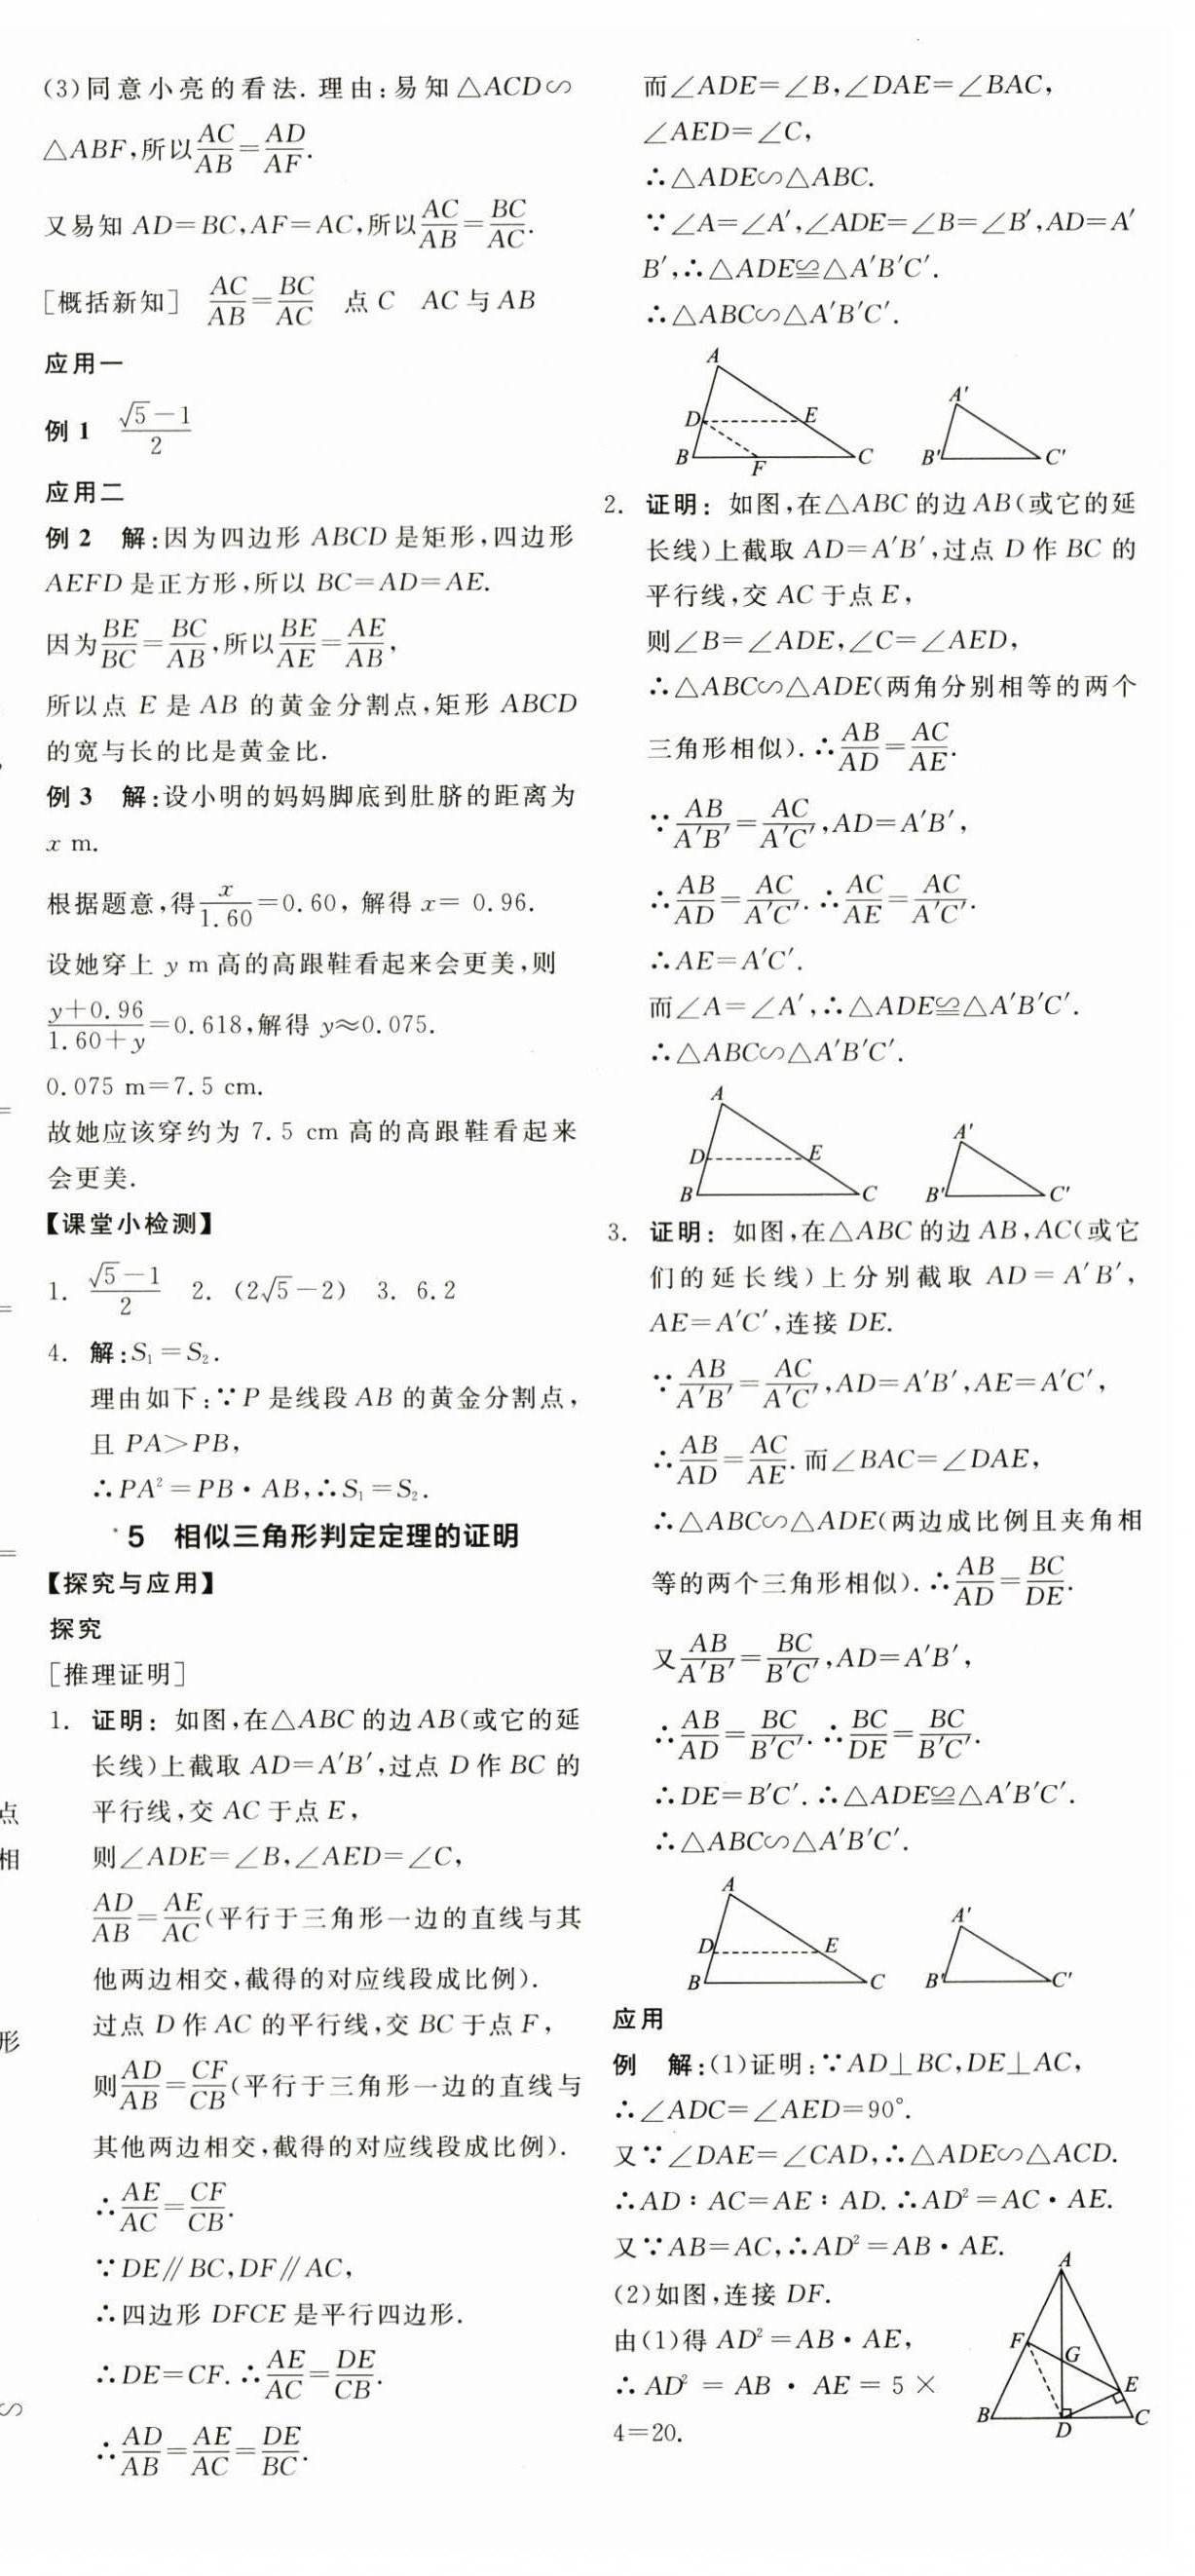 (3)同意小亮的看法. 理由:易知△ACD∽
△ABF,所以AC/AB=AD/AF.
又易知 AD=BC,AF=AC,所以AC/AB=BC/AC.
[概括新知] AC/AB=BC/AC 点 C AC 与 AB
应用一
例 1 (√5-1)/2
应用二
例 2 解:因为四边形 ABCD 是矩形,四边形
AEFD 是正方形,所以 BC=AD=AE.
因为BE/BC=BC/AB,所以BE/AE=AE/AB,
所以点 E 是 AB 的黄金分割点,矩形 ABCD
的宽与长的比是黄金比.
例 3 解:设小明的妈妈脚底到肚脐的距离为
x m.
根据题意,得x/1.60=0.60, 解得 x= 0.96.
设她穿上 y m 高的高跟鞋看起来会更美,则
(y+0.96)/(1.60+y)=0.618,解得 y≈0.075.
0.075 m=7.5 cm.
故她应该穿约为 7.5 cm 高的高跟鞋看起来
会更美.
【课堂小检测】
1. (√5-1)/2 2. (2√5-2) 3. 6.2
4. 解:S₁=S₂.
理由如下:∵P 是线段 AB 的黄金分割点,
且 PA>PB,
∴PA²=PB·AB,∴S₁=S₂.
*5 相似三角形判定定理的证明
【探究与应用】
探究
[推理证明]
1. 证明: 如图,在△ABC 的边 AB(或它的延
长线)上截取 AD=A′B′,过点 D 作 BC 的
平行线,交 AC 于点 E,
则∠ADE=∠B,∠AED=∠C,
AD/AB=AE/AC(平行于三角形一边的直线与其
他两边相交,截得的对应线段成比例).
过点 D 作 AC 的平行线,交 BC 于点 F,
则AD/AB=CF/CB(平行于三角形一边的直线与
其他两边相交,截得的对应线段成比例).
∴AE/AC=CF/CB.
∵DE∥BC,DF∥AC,
∴四边形 DFCE 是平行四边形.
∴DE=CF.∴AE/AC=DE/CB.
∴AD/AB=AE/AC=DE/BC.
而∠ADE=∠B,∠DAE=∠BAC,
∠AED=∠C,
∴△ADE∽△ABC.
∵∠A=∠A′,∠ADE=∠B=∠B′,AD=A′
B′,∴△ADE≌△A′B′C′.
∴△ABC∽△A′B′C′.
A
D E
B F C
A′
B′ C′
2. 证明: 如图,在△ABC 的边 AB(或它的延
长线)上截取 AD=A′B′,过点 D 作 BC 的
平行线,交 AC 于点 E,
则∠B=∠ADE,∠C=∠AED,
∴△ABC∽△ADE(两角分别相等的两个
三角形相似).∴AB/AD=AC/AE.
∵AB/A′B′=AC/A′C′,AD=A′B′,
∴AB/AD=AC/A′C′.∴AC/AE=AC/A′C′.
∴AE=A′C′.
而∠A=∠A′,∴△ADE≌△A′B′C′.
∴△ABC∽△A′B′C′.
A
D E
B C
A′
B′ C′
3. 证明: 如图,在△ABC 的边 AB,AC(或它
们的延长线)上分别截取 AD=A′B′,
AE=A′C′,连接 DE.
∵AB/A′B′=AC/A′C′,AD=A′B′,AE=A′C′,
∴AB/AD=AC/AE.而∠BAC=∠DAE,
∴△ABC∽△ADE(两边成比例且夹角相
等的两个三角形相似).∴AB/AD=BC/DE.
又AB/A′B′=BC/B′C′,AD=A′B′,
∴AB/AD=BC/B′C′.∴BC/DE=BC/B′C′.
∴DE=B′C′.∴△ADE≌△A′B′C′.
∴△ABC∽△A′B′C′.
A
D E
B C
A′
B′ C′
应用
例 解:(1)证明:∵AD⊥BC,DE⊥AC,
∴∠ADC=∠AED=90°.
又∵∠DAE=∠CAD,∴△ADE∽△ACD.
∴AD∶AC=AE∶AD.∴AD²=AC·AE.
又∵AB=AC,∴AD²=AB·AE.
(2)如图,连接 DF.
由(1)得 AD²=AB·AE,
∴AD²=AB·AE=5×
4=20.
A
F G
E
B D C
点
相
形
∽